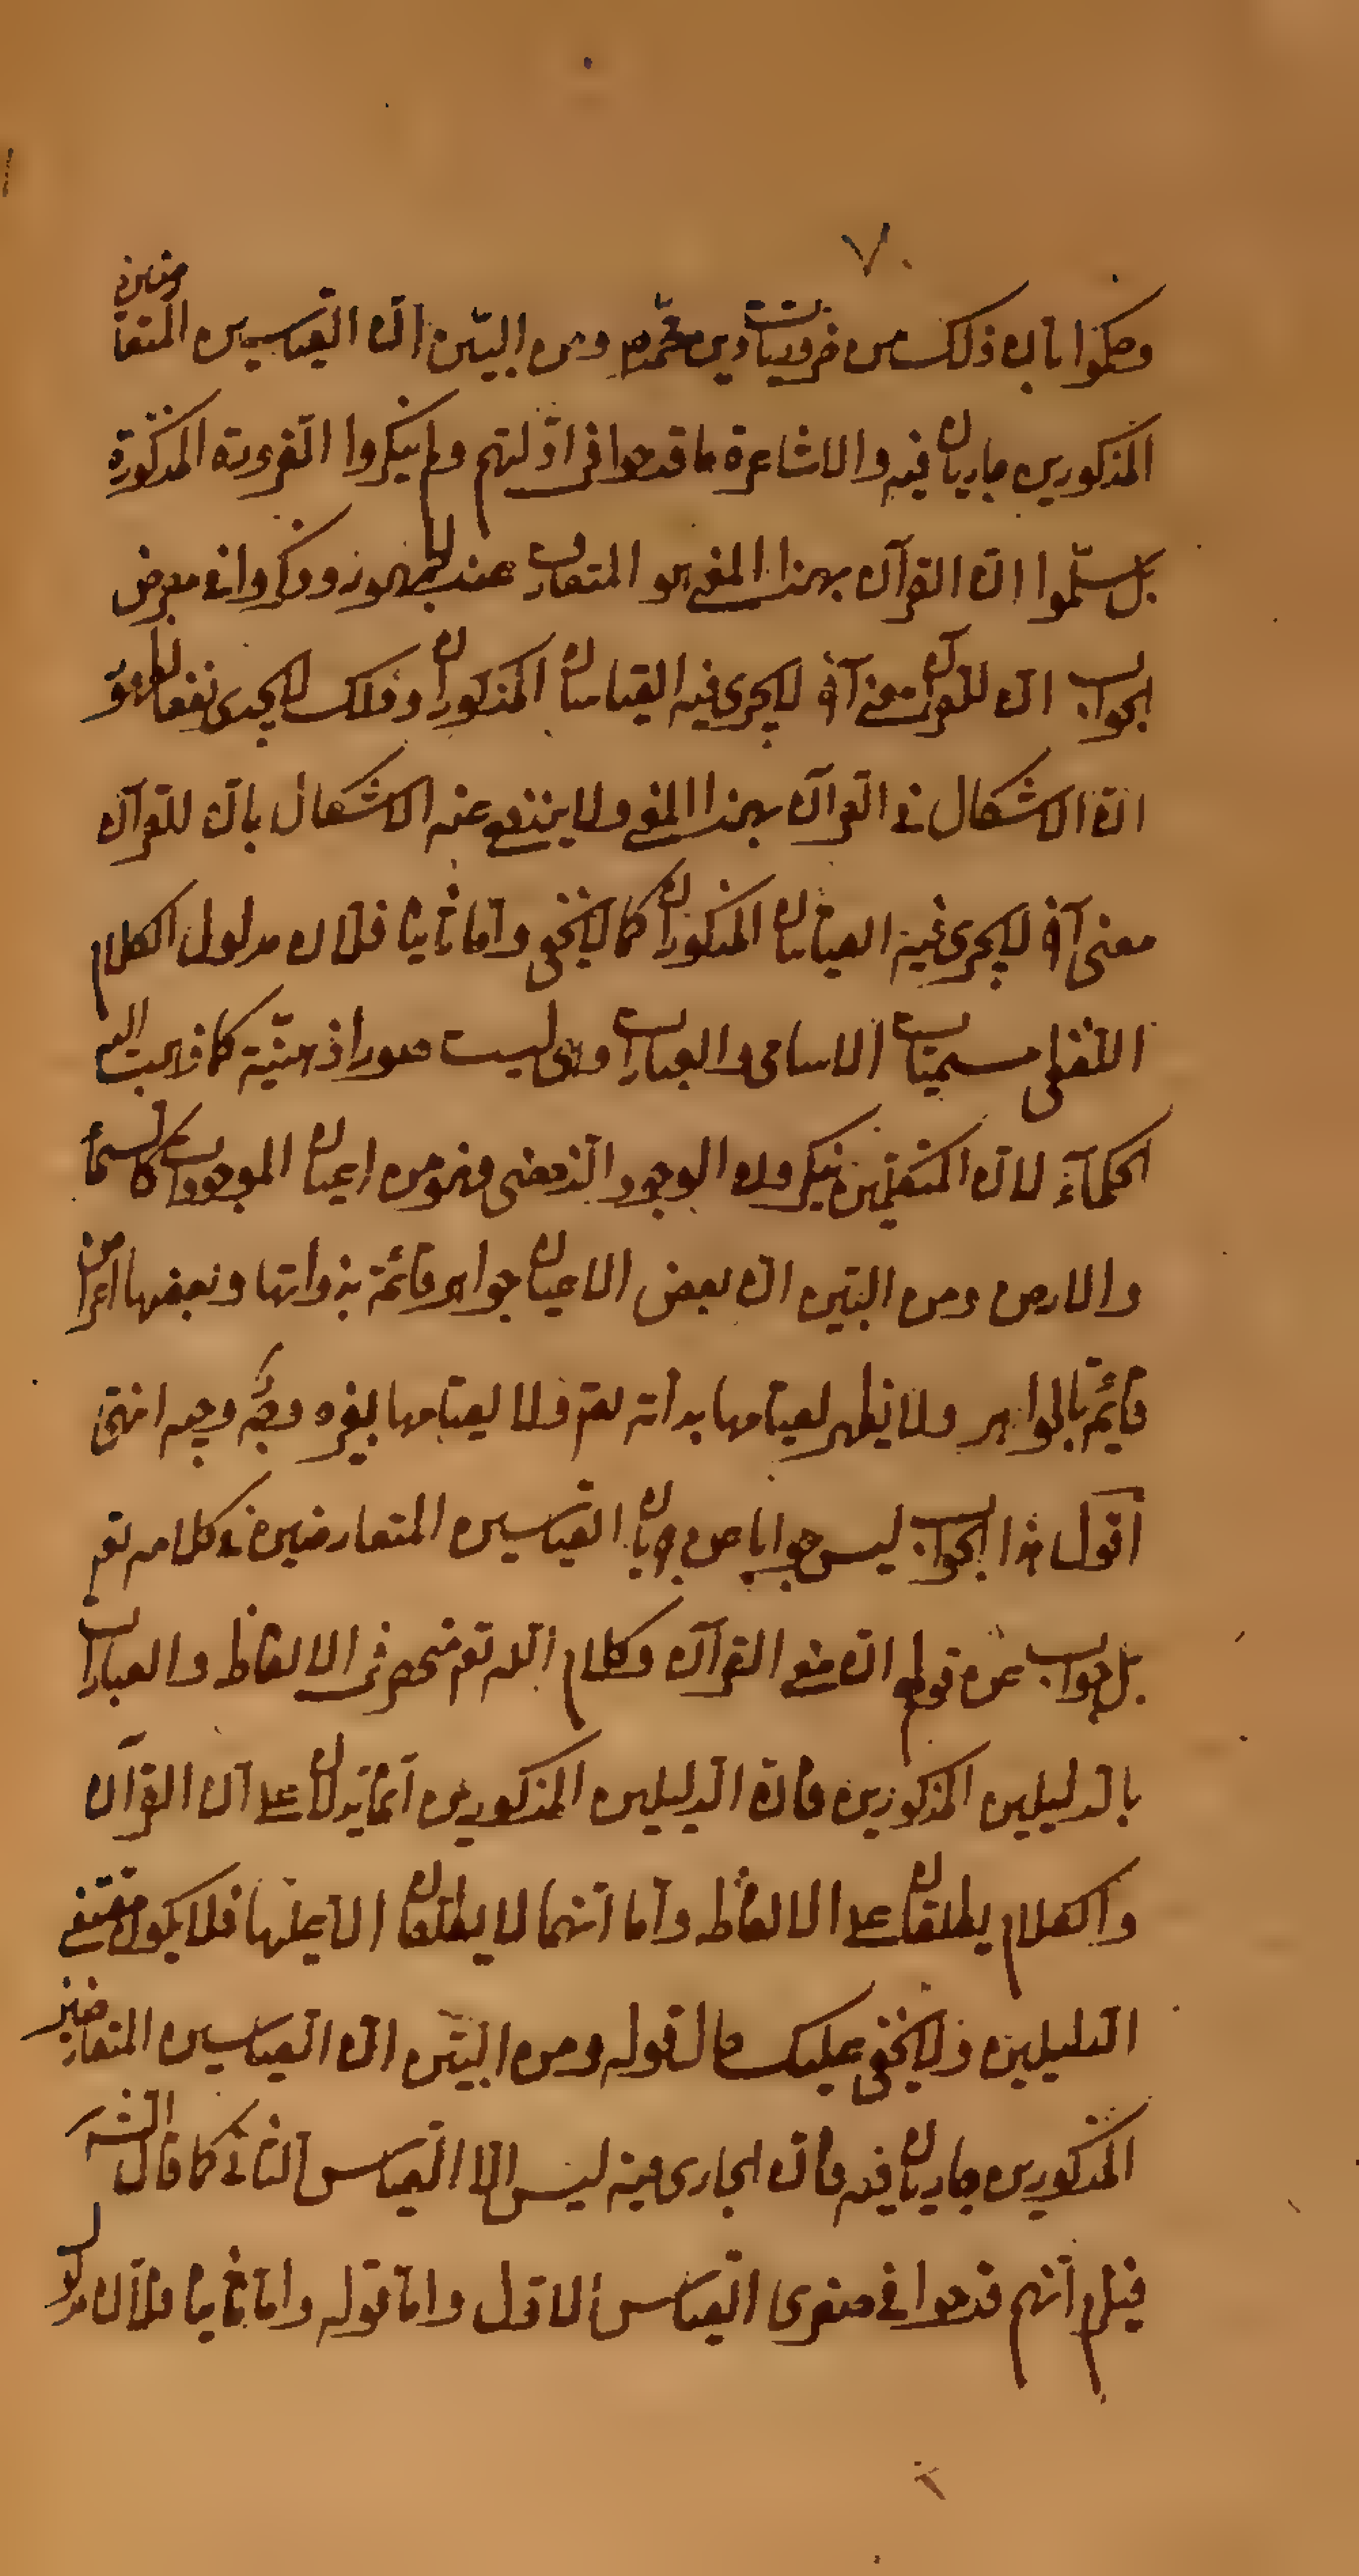 ٧٠
وحكموا بان ذلك من ضروريات دين محمد ص ومن البيّن انّ القياسين المتعارضين
المذكورين جاريان فيه والاشاعرة ما قدحوا فى ادّلتهم ولم ينكروا الضرورة المذكورة
بل سلّموا انّ القرآن بهذا المعنى هو المتعارف عند الجمهور وذكروا فى معرض
الجواب انّ للقرآن معنى آخر لا يجرى فيه القياسان المذكوران وذلك لا يجدى نفعا لظهور
انّ الاشكال فى القرآن بهذا المعنى ولا يندفع عنه الاشكال بانّ للقرآن
معنى آخر لا يجرى فيه القياسان المذكوران كما لا يخفى وامّا ثانيا فلانّ مدلول الكلام
اللّفظى مسميّات الاسامى والعبارات وهى ليست صورا ذهنيّة كما ذهبت اليه
الحكمآء لانّ المتكلّمين ينكرون الوجود الذهنى فهو من اعيان الموجودات كالسمآء
والارض ومن البيّن انّ بعض الاعيان جواهر قائمة بذواتها وبعضها اعراض
قائمة بالجواهر ولا يظهر لقيامها بذاته تعم ولا لقيامها بغيره وجه وجيه انتهى
اقول هذا الجواب ليس جوابا عن جريان القياسين المتعارضين فى كلامه تعم
بل جواب عن قولهم انّ معنى القرآن وكلام اللّه تعم منحصر فى الالفاظ والعبارات
بالدليلين المذكورين فانّ الدليلين المذكورين انّما يدلّان على انّ القرآن
والكلام يطلقان على الالفاظ وامّا انّهما لا يطلقان الّا عليها فلا يكون مقتضى
الدليلين ولا يخفى عليك حال قوله ومن البيّن انّ القياسين المتعارضين
المذكورين جاريان فيه فانّ الجارى فيه ليس الّا القياس الثانى كما قال الشر
فيلم انّهم قدحوا فى صغرى القياس الاوّل وامّا قوله وامّا ثانيا فلانّ مدلول